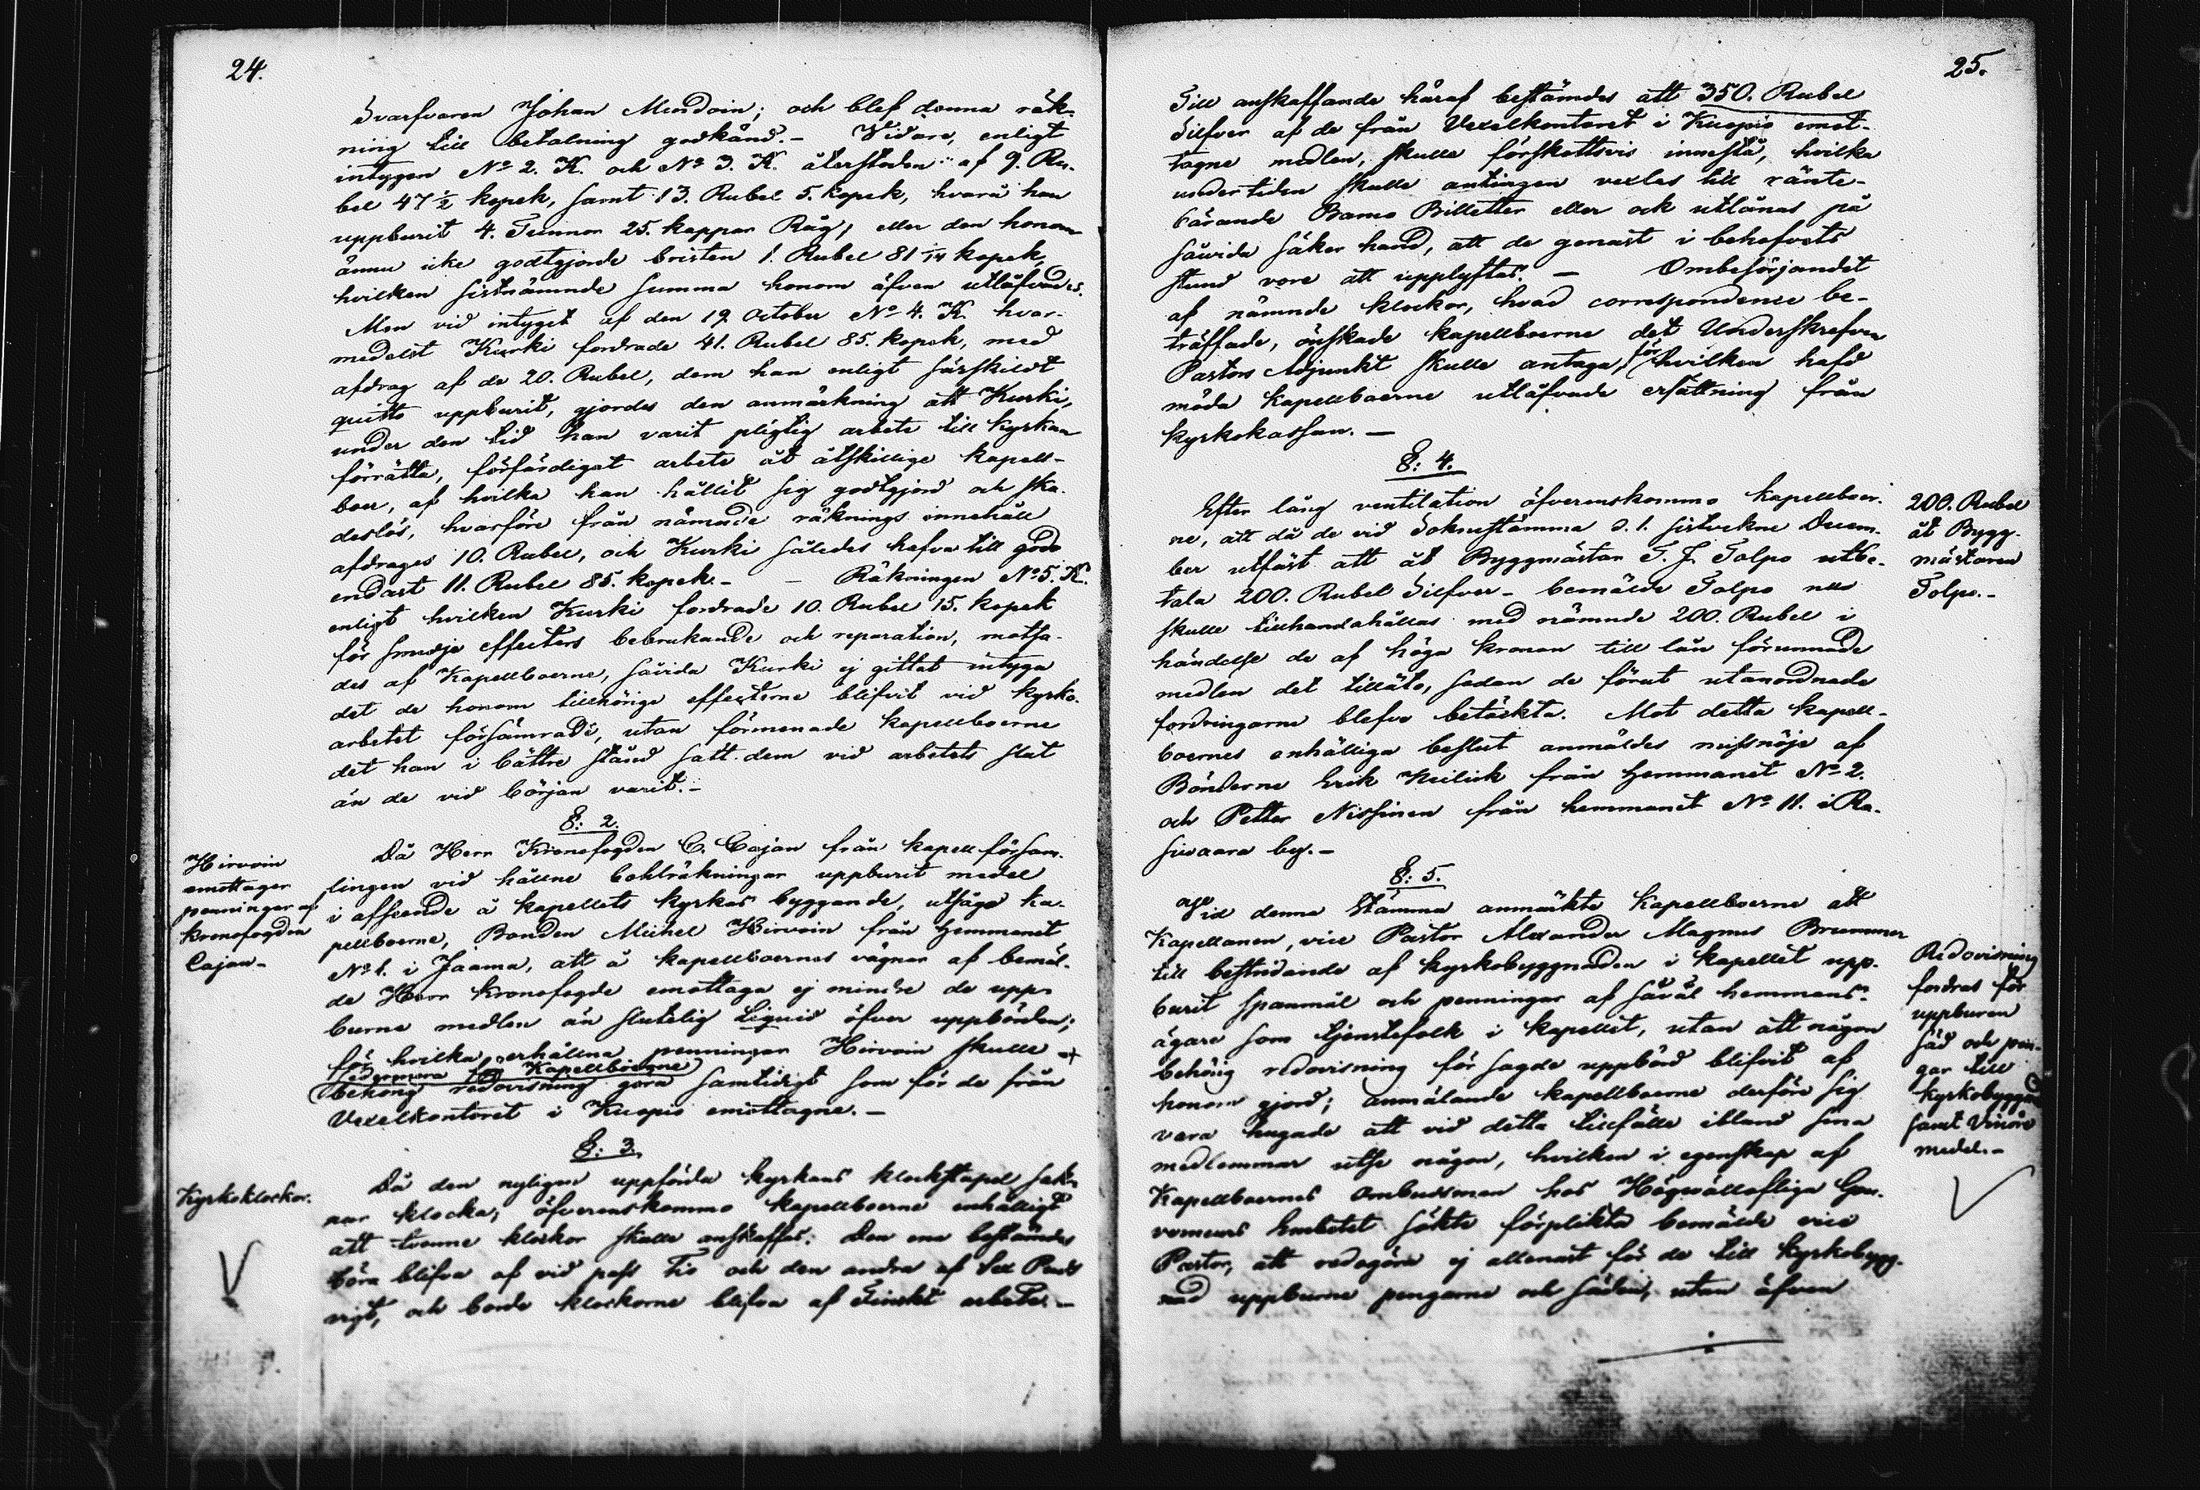 24.
Svarfvaren Johan Mondoin; och blef denna räk-
ning till betalning godkänd.- Vidare, enligt
intygen No 2. K. och No 3. K. återstoden af 9. Ru-
bel 47 1/2 kopek, samt 13. Rubel 5. kopek, hvarå han
uppburit 4. Tunnor 25. kappar Råg, eller den honom
ännu icke godtgjorde bristen 1. Rubel 81 1/14 kopek,
hvilken sistnämnde summa honom äfven utlåfvades.
Men vid intyget af den 19 October No 4. K. hvar-
medelst Kurki fordrade 41. Rubel 85. kopek, med
afdrag af de 20. Rubel, dem han enligt särskildt
quitto uppburit, gjordes den anmärkning att Kurki,
under den tid han varit pligtig arbete till kyrkan
förrätta, förfärdigat arbete åt åtskillige kapell-
boer, af hvilka han hållit sig godtgjord och ska-
deslös, hvarföre från nämnde räknings innehåll
afdrages 10. Rubel, och Kurki således hafva till godo
endast 11. Rubel 85. kopek.- - Räkningen No 5. K.
enligt hvilken Kurki fordrade 10. Rubel 15. kopek
för smidje effecters bebrukande och reparation, motsa-
des af Kapellboerne, såvida Kurki ej gittat intyga
det de honom tillhörige effecterne blifvit vid kyrko-
arbetet försämrade, utan förmenade kapellboerne
det han i bättre stånd satt dem vid arbetets slut
än de vid början varit.-
§: 2.
Hirvoin
emottager
penningar af
kronofogden
Cajan-
Då Herr Kronofogden C. Cajan från kapellförsam-
lingen vid hållne bohlräkningar uppburit medel
i afseende å kapellets kyrkas byggande, utsågo ka-
pellboerne, Bonden Michel Hirvoin från Hemmanet
No 1. i Jaama, att å kapellboernes vägnar af bemäl-
de Herr Kronofogde emottaga ej mindre de upp-
burne medlen än slutelig Liquid öfver uppbörden;
för hvilka erhållna penningar Hirvoin skulle
sedermera för Kapellboerne
behörig redovisning göra samtidigt som för de från
Vexelkontoret i Kuopio emottagne.-
§: 3.
Kyrkoklockor.
Då den nyligen uppförda kyrkans klockstapel sak-
nar klocka, öfverenskommo kapellboerne enhälligt
att tvenne klockor skulle anskaffas: Den ena bestämdes
böra blifva af vid pass Tio och den andra af sex Puds
vigt, och borde klockorne blifva af Finskt arbete.-
25.
Till anskaffande häraf bestämdes att 350. Rubel
Silfver af de från Vexelkontoret i Kuopio emot-
tagne medlen, skulle förskottsvis innestå, hvilka
undertiden skulle antingen vexlas till ränte-
bärande Banco Billetter eller ock utlånas på
såvida säker hand, att de genast i behofvets
stund vore att upplyftas. - Ombesörjandet
af nämnde klockor, hvad correspondence be-
träffade, önskade kapellboerne det Underskrefven
Pastors Adjunkt skulle antaga, för hvilken hafd
möda kapellboerne utlåfvade ersättning från
kyrkokassan.-
§: 4.
Efter lång ventilation öfverenskommo kapellboer-
ne, att då de vid Soknestämma d. 1. sistvekne Decem-
ber utfäst att åt Byggmästar T. J. Tolpo utbe-
tala 200. Rubel Silfver- bemälde Tolpo nu
skulle tillhandahållas med nämnde 200. Rubel i
händelse de af höga kronan till lån förunnade
medlen det tilläto, sedan de förut utanordnade
fordringarne blefvo betäckta. Mot detta kapell-
boernes enhälliga beslut anmäldes missnöje af
Bönderne Erik Keilick från Hemmanet No 2.
och Petter Nissinen från hemmanet No 11. i Ra-
sivaara by.-
200. Rubel
åt Bygg-
mästaren
Tolpo.-
§: 5.
Vid denna Stämma anmärkte Kapellboerne att
Kapellanen, vice Pastor Alexander Magnus Brummer
till bestridande af kyrkobyggnaden i kapellet upp-
burit spanmål och penningar af såväl hemmans-
ägare som tjenstefolk i kapellet, utan att någon
behörig redovisning för sagde uppbörd blifvit af
honom gjord; anmälande kapellboerne derföre sig
vara hugade att vid detta tillfälle ibland sina
medlemmar utse någon, hvilken i egenskap af
Kapellboernes Ombudsman hos Högvällofliga Gou-
verneurs Embetet sökte förplikta bemälde vice
Pastor, att redogöra ej allenast för de till kyrkobygg-
nad uppburne pengarne och säden, utan äfven
Redovisning
fordras för
uppburen
säd och pen-
gar till
kyrkobyggnad
samt Vinöre
medel.-